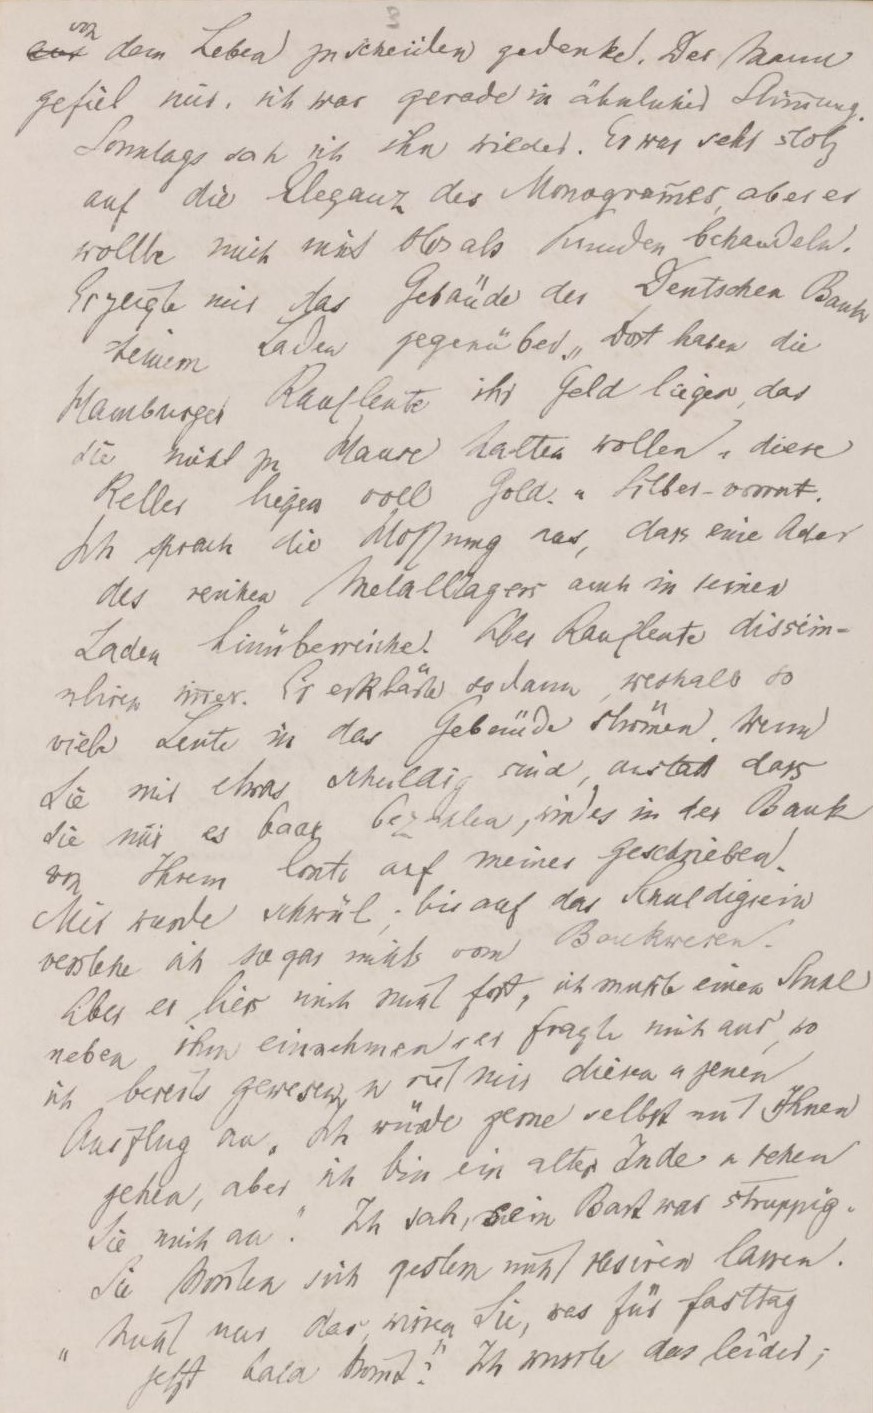 von
aus dem Leben zu scheiden gedenke. Der Mann
gefiel mir, ich war gerade in ähnlicher Stim̄ung.
Sonntags sah ich ihn wieder. Er war sehr stolz
auf die Eleganz des Monogram̄es, aber er
wollte mich nicht blos als Kunden behandeln.
Er zeigte mir das Gebäude der Deutschen Bank
seinem Laden gegenüber, „Dort haben die
Hamburger Kaufleute ihr Geld liegen, das
sie nicht zu Hause halten wollen, u diese
Keller liegen voll Gold- u Silber-vorrat.
Ich sprach die Hoffnung aus, dass eine Ader
des reichen Metalllagers auch in seinen
Laden hinüberreiche. Aber Kaufleute dissim-
uliren im̄er. Er erklärte sodann, weshalb so
viele Leute in das Gebäude strömen. Wenn
Sie mir etwas schuldig sind, anstatt dass
Sie mir es baar bezahlen, wird es in der Bank
von Ihrem Conto auf meines geschrieben.
Mir wurde schwül; bis auf das Schuldigsein
verstehe ich sogar nichts vom Bankwesen.
Aber er liess mich nicht fort, ich musste einen Stuhl
neben ihm einnehmen u er fragte mich aus, wo
ich bereits gewesen, u riet mir diesen u jenen
Ausflug an. „Ich würde gerne selbst mit Ihnen
gehen, aber ich bin ein alter Jude u sehen
Sie mich an." Ich sah, sein Bart war struppig.
Sie kon̄ten sich gestern nicht rasiren lassen.
„Nicht nur das, wissen Sie, was für Fasttag
jetzt bald kom̄t?" Ich wusste das leider;